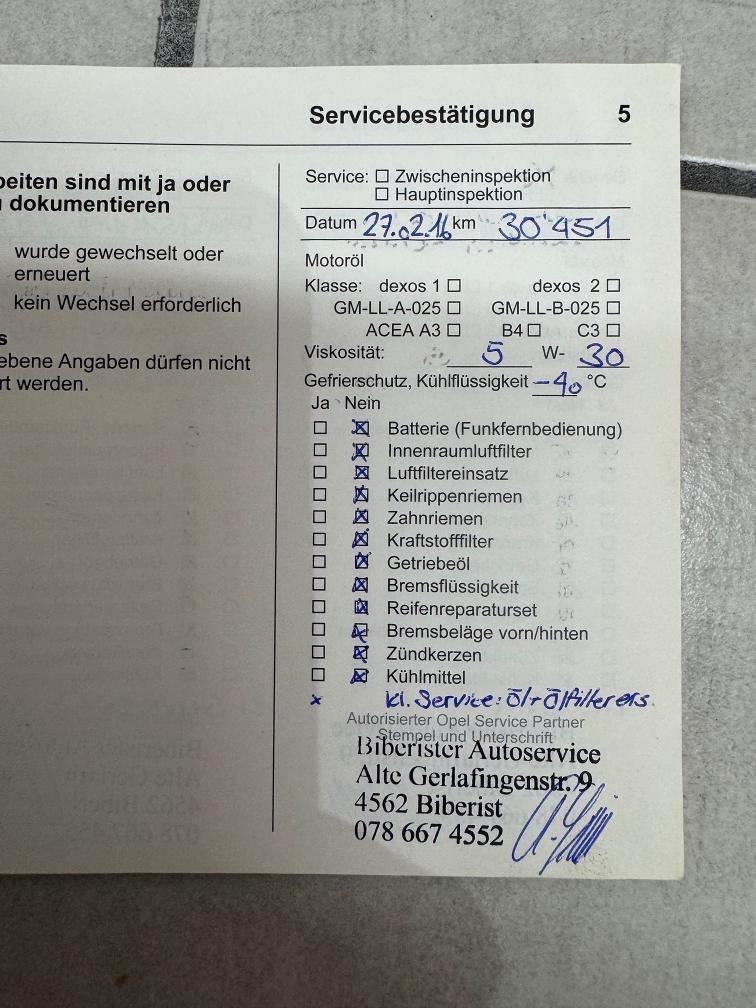 Servicebestätigung 5
beiten sind mit ja oder
dokumentieren
wurde gewechselt oder
erneuert
kein Wechsel erforderlich
s
ebene Angaben dürfen nicht
rt werden.
Service: ☐ Zwischeninspektion
☐ Hauptinspektion
Datum 27.02.16 km 30'451
Motoröl
Klasse: dexos 1 ☐ dexos 2 ☐
GM-LL-A-025 ☐ GM-LL-B-025 ☐
ACEA A3 ☐ B4 ☐ C3 ☐
Viskosität: 5 W- 30
Gefrierschutz, Kühlflüssigkeit -40 °C
Ja Nein
☐ ☒ Batterie (Funkfernbedienung)
☐ ☒ Innenraumluftfilter
☐ ☒ Luftfiltereinsatz
☐ ☒ Keilrippenriemen
☐ ☒ Zahnriemen
☐ ☒ Kraftstofffilter
☐ ☒ Getriebeöl
☐ ☒ Bremsflüssigkeit
☐ ☒ Reifenreparaturset
☐ ☒ Bremsbeläge vorn/hinten
☐ ☒ Zündkerzen
☐ ☒ Kühlmittel
x kl. Service: Öl + Ölfilter ers.
Autorisierter Opel Service Partner
Stempel und Unterschrift
Biberister Autoservice
Alte Gerlafingenstr. 9
4562 Biberist
078 667 4552